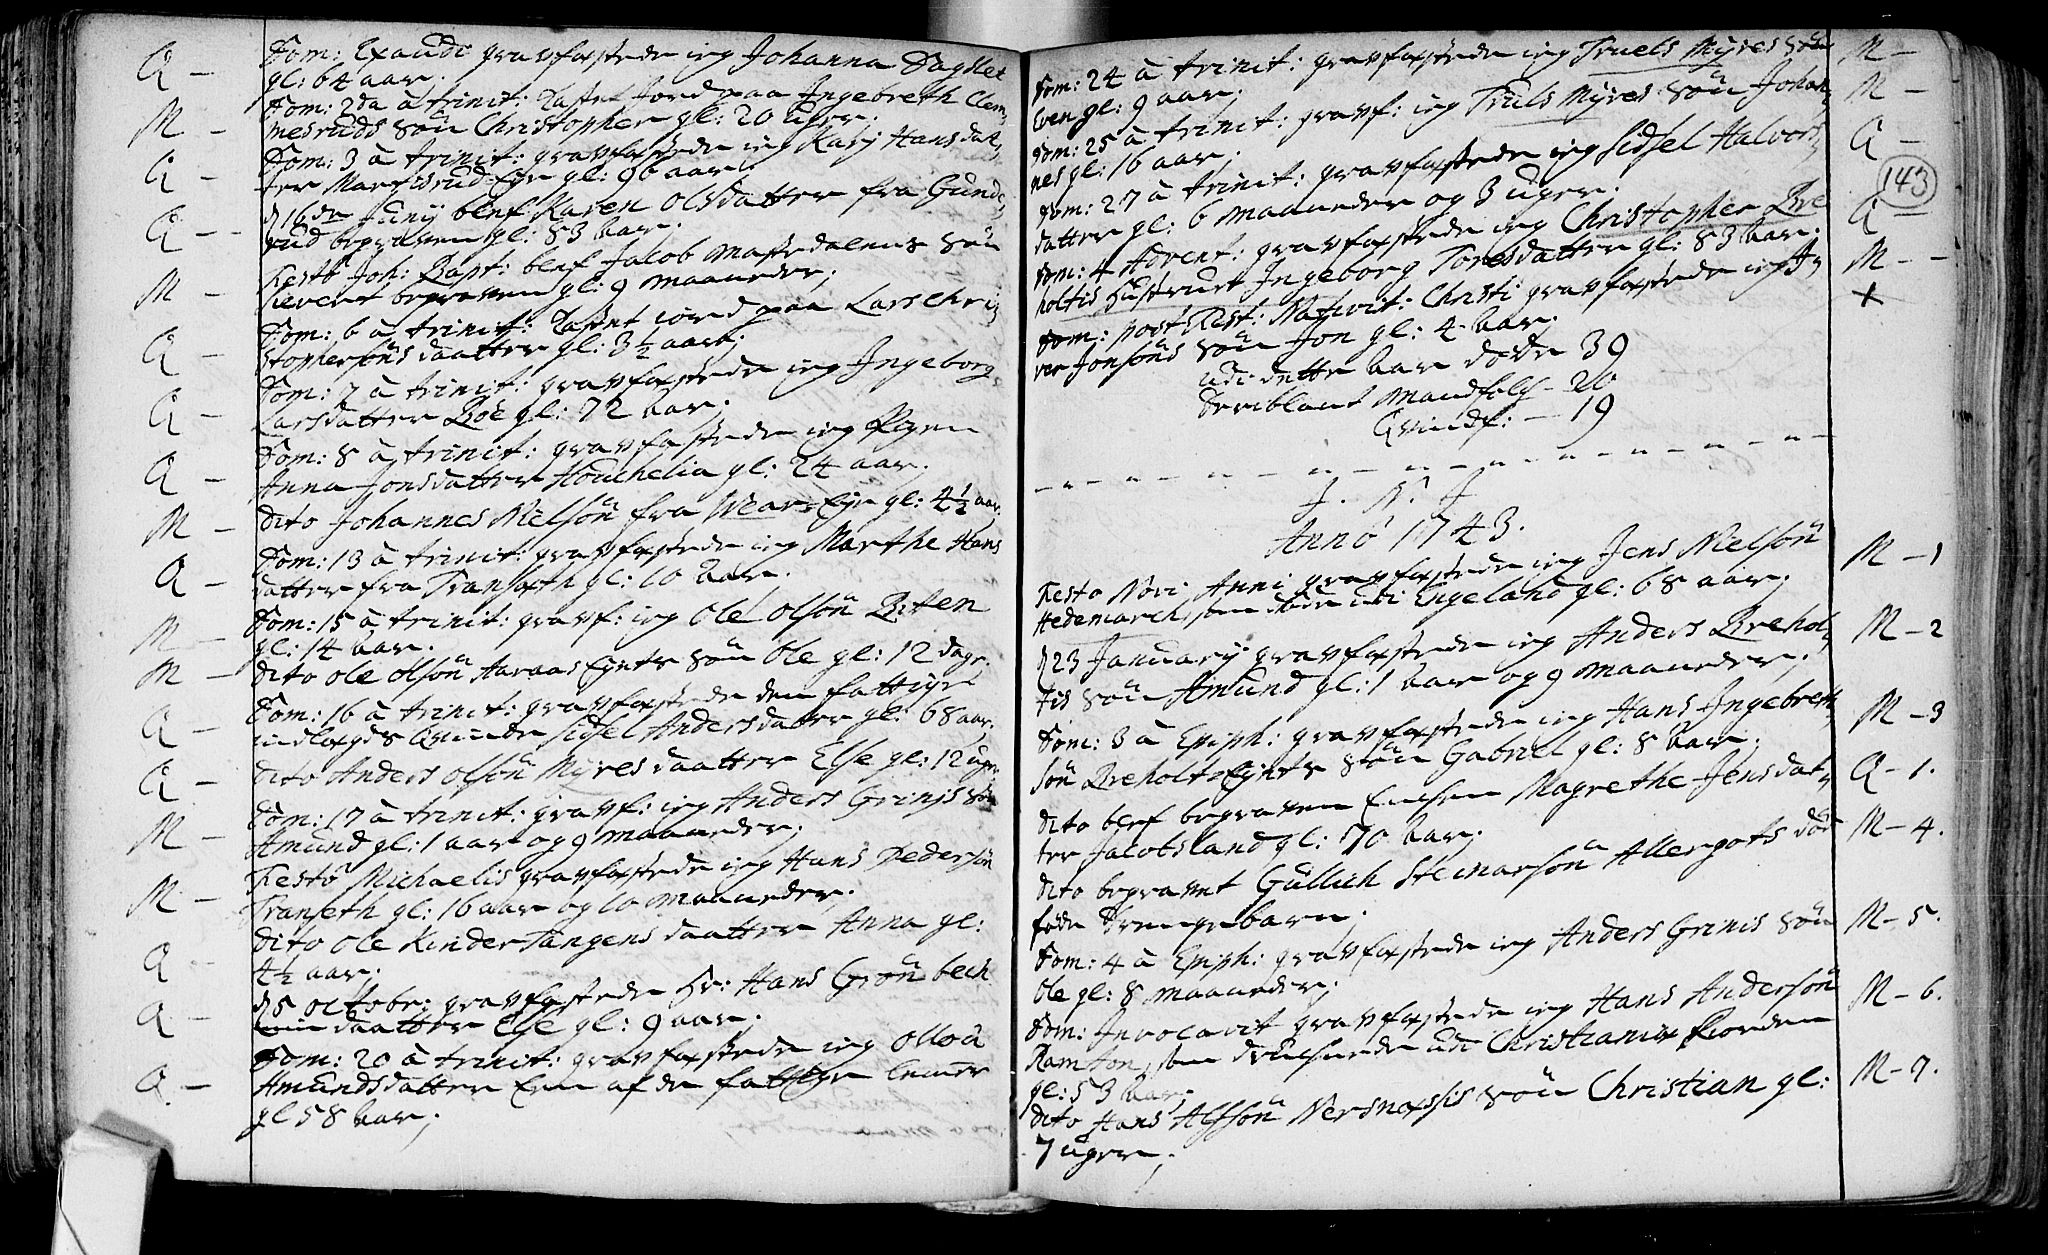 Q - Dom: Exaudi gravfæstede ieg Johanna Dagslet
gl: 64 aar.
M - Dom: 2da à trinit: kastet Jord paa Ingebreth Clem
mesruds søn Christopher gl: 20 uger.
Q - Dom: 3 à trinit: gravfæstede ieg Kary Hansdat,
ter Eje gl: 96 aar.
Q - d 16de Juny blef Karen Olsdatter fra Gunde,
rud begraven gl: 83 aar.
M - Festo Joh: Bapt: blef Jacob Mastedalens søn
Sievert begraven gl: 9 maaneder;
Q - Dom: 6 à trinit: kastet iord paa Lars Chri,
stophersøns daatter gl: 3½ aar;
Q - Dom: 7 à trinit: gravfæstede ieg Ingeborg
Larsdatter Böe gl: 72 aar;
Q - Dom: 8 à trinit: gravfæstede ieg Pigen
Anna Jonsdatter Houchelia gl: 24 aar.
M - dito Johannes Nielsøn fra Wear Eje gl: 4½ aar
Q - Dom: 13 à trinit: gravfæstede ieg Marthe Hans
datter fra Transæth gl: 10 aar.
M - Dom: 15 à trinit: gravf: ieg Ole Olsøn Biten
gl: 14 aar.
M - dito Ole Olsøn Haraas Ejets søn Ole gl: 12 dage.
Q - Dom: 16 à trinit: gravfæstede den fattige
indlagde Qvinde Sidsel Andersdatter gl: 68 aar;
Q - dito Anders Olsøn Myres daatter Else gl: 12 uger
M - Dom: 17 à trinit: gravf: ieg Anders Grinis søn
Amund gl: 1 aar og 9 maaneder;
M - Festo Michaelis gravfæstede ieg Hans Pedersøn
Transeth gl: 16 aar og 10 maaneder.
Q - dito Ole Kindertangens daatter Anna gl:
4½ aar;
Q - d 5 octobr: gravfæstede Hr: Hans Grønbech
min daatter Else gl: 9 aar.
Q. - Dom: 20 à trinit: gravfæstede ieg Olloü
Amundsdatter Een af de fattige lemer
gl 58 aar;
Dom: 24 à trinit: gravfæstede ieg Truels Myres søn M -
Even gl: 9 aar;
Dom: 25 à trinit: gravf: ieg Truls Myres søn Johan, M -
nes gl: 16 aar;
Dom: 27 à trinit: gravfæstede ieg Sidsel Halvors, Q -
143
datter gl: 6 maaneder og 3 uger.
Dom: 4 Advent: gravfæstede ieg Christopher Bre Q -
holtis Hustrue Ingeborg Toresdatter gl: 83 aar.
Dom: post Fest: Nativit: Christi gravfæstede ieg I, M -
ver Jonsøns søn Jon gl: 4 aar. +
Udi dette aar døde 39
Deriblant Mandfolch - 20
Qvindf: - 19
J. N. J
Anno 1743.
Festo Novi Anni gravfæstede ieg Jens Nielsøn M - 1
Hedemarch, som døde udi Engeland gl: 68 aar;
d 23 January gravfæstede ieg Anders Brehol, M - 2
tis søn Amund gl: 1 aar og 9 maaneder;
Dom: 3 à Epiph: gravfæstede ieg Hans Ingebreth, M - 3
søn Breholt Ejets søn Gabriel gl: 8 aar.
dito blef begraven Enchen Magrethe Jensdat, Q - 1.
ter Jacobsland gl: 70 aar;
dito begravet Gullich Steinarsøn Allergots død M - 4.
føde drengebarn;
Dom: 4 à Epiph: gravfæstede ieg Anders Grinis søn M - 5.
Ole gl: 8 maaneder;
Dom: Invocavit gravfæstede ieg Hans Andersøn M - 6.
Ramton, som druchnede udi Christianiæ fiorden
gl: 53 aar.
dito Hans Alfsøn Nersnæssis søn Christian gl: M - 7.
7 uger;